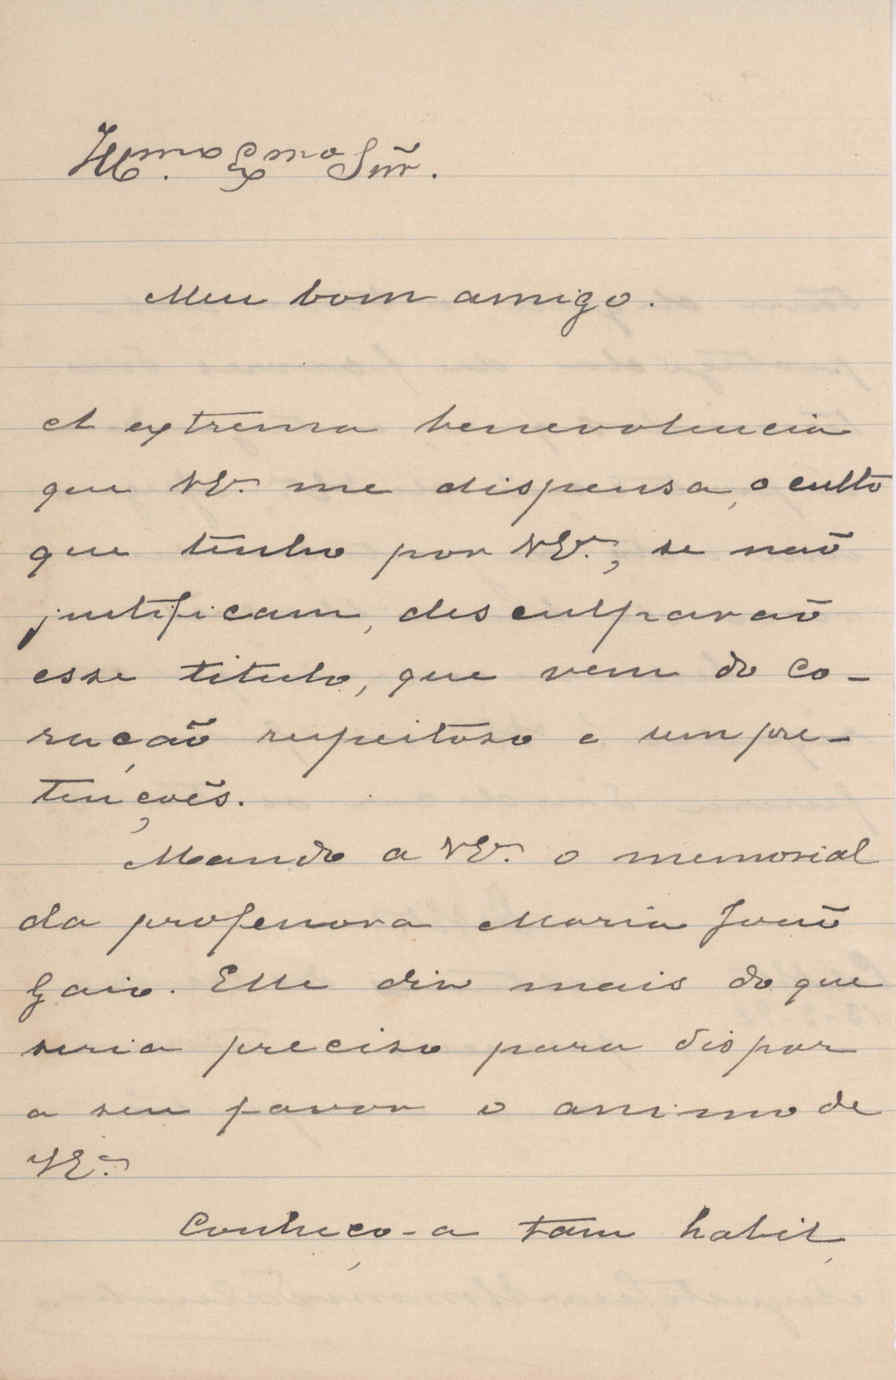 Illmo. Exmo Sñr.
Meu bom amigo.
A extrema benevolencia
que V.Eª. me dispensa, o culto
que tenho por V.Eª., se não
justificam, desculparão
esse titulo, que vem do co-
ração respeitoso e sem pre-
tenções.
Mando a V.Eª. o memorial
da professora Maria João
Gaio. Elle diz mais do que
seria preciso para dispor
a seu favor o animo de
V.Eª.
Conheço-a tam habil,